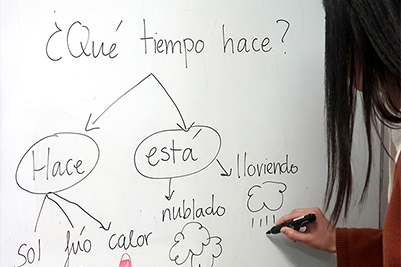 ¿Qué tiempo hace?
Hace
está
lloviendo
nublado
sol frío calor